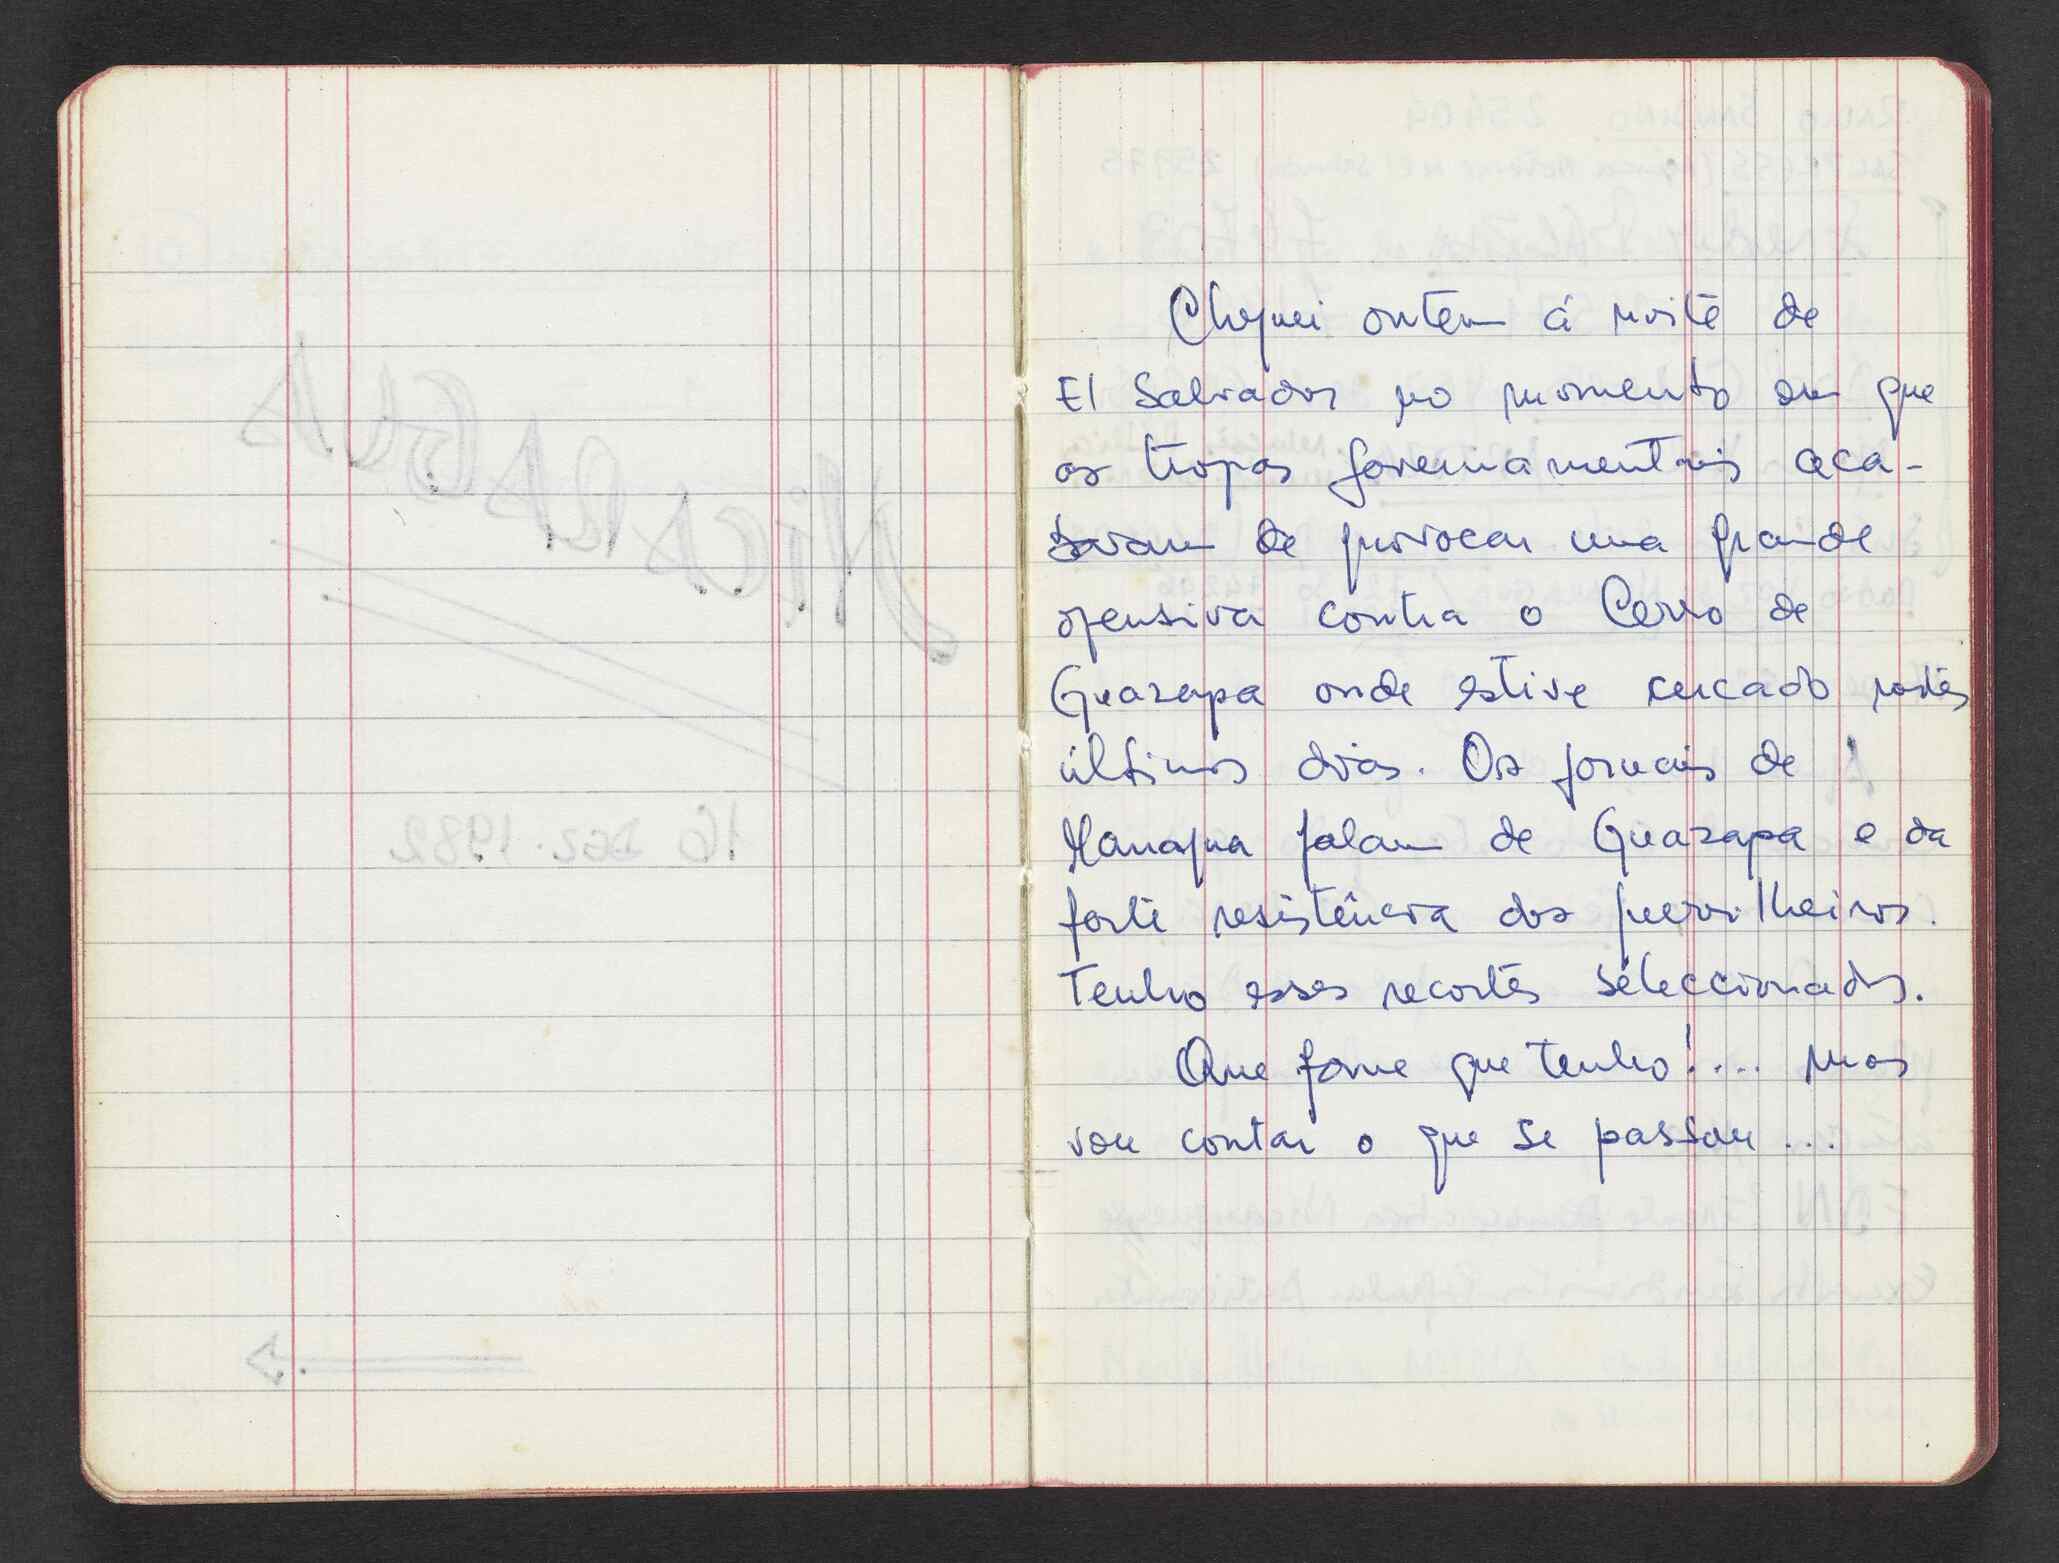 Cheguei ontem á noite de
El Salvador no momento em que
as tropas governamentais aca-
bavam de provocar uma grande
ofensiva contra o Cerro de
Guazapa onde estive cercado nestes
últimos dias. Os jornais de
Managua falam de Guazapa e da
forte resistência dos guerrilheiros.
Tenho esses recortes seleccionados.
Que fome que tenho!.... mas
vou contar o que se passou...
NICARAGUA
16 DEZ. 1982